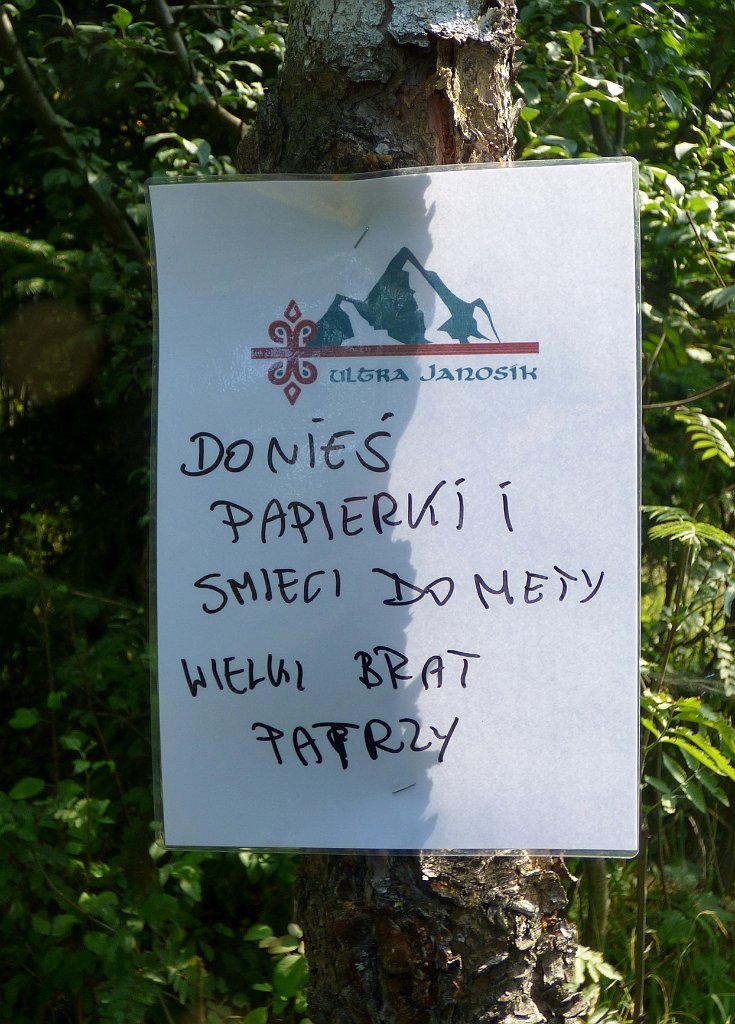 ULTRA JANOSIK
DONIEŚ
PAPIERKI I
SMIECI DO METY
WIELKI BRAT
PATRZY